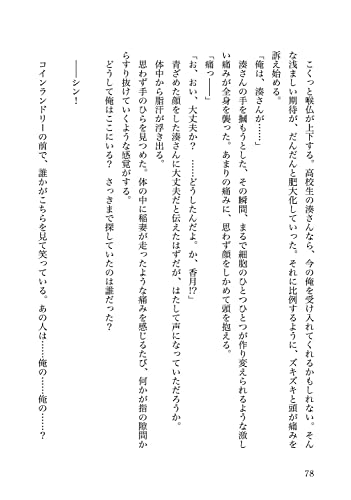 こくっと喉仏が上下する。高校生の湊さんなら、今の俺を受け入れてくれるかもしれない。そん
な浅ましい期待が、だんだんと肥大化していった。それに比例するように、ズキズキと頭が痛みを
訴え始める。
「俺は、湊さんが……」
湊さんの手を掴もうとした、その瞬間、まるで細胞のひとつひとつが作り変えられるような激し
い痛みが全身を襲った。あまりの痛みに、思わず顔をしかめて頭を抱える。
「痛っ――」
「お、おい、大丈夫か？　……どうしたんだよ。か、香月!?」
青ざめた顔をした湊さんに大丈夫だと伝えたはずだが、はたして声になっていただろうか。
体中から脂汗が浮き出る。
思わず手のひらを見つめた。体の中に稲妻が走ったような痛みを感じるたび、何かが指の隙間か
らすり抜けていくような感覚がする。
どうして俺はここにいる？　さっきまで探していたのは誰だった？
――シン！
コインランドリーの前で、誰かがこちらを見て笑っている。あの人は……俺の……俺の……？
78